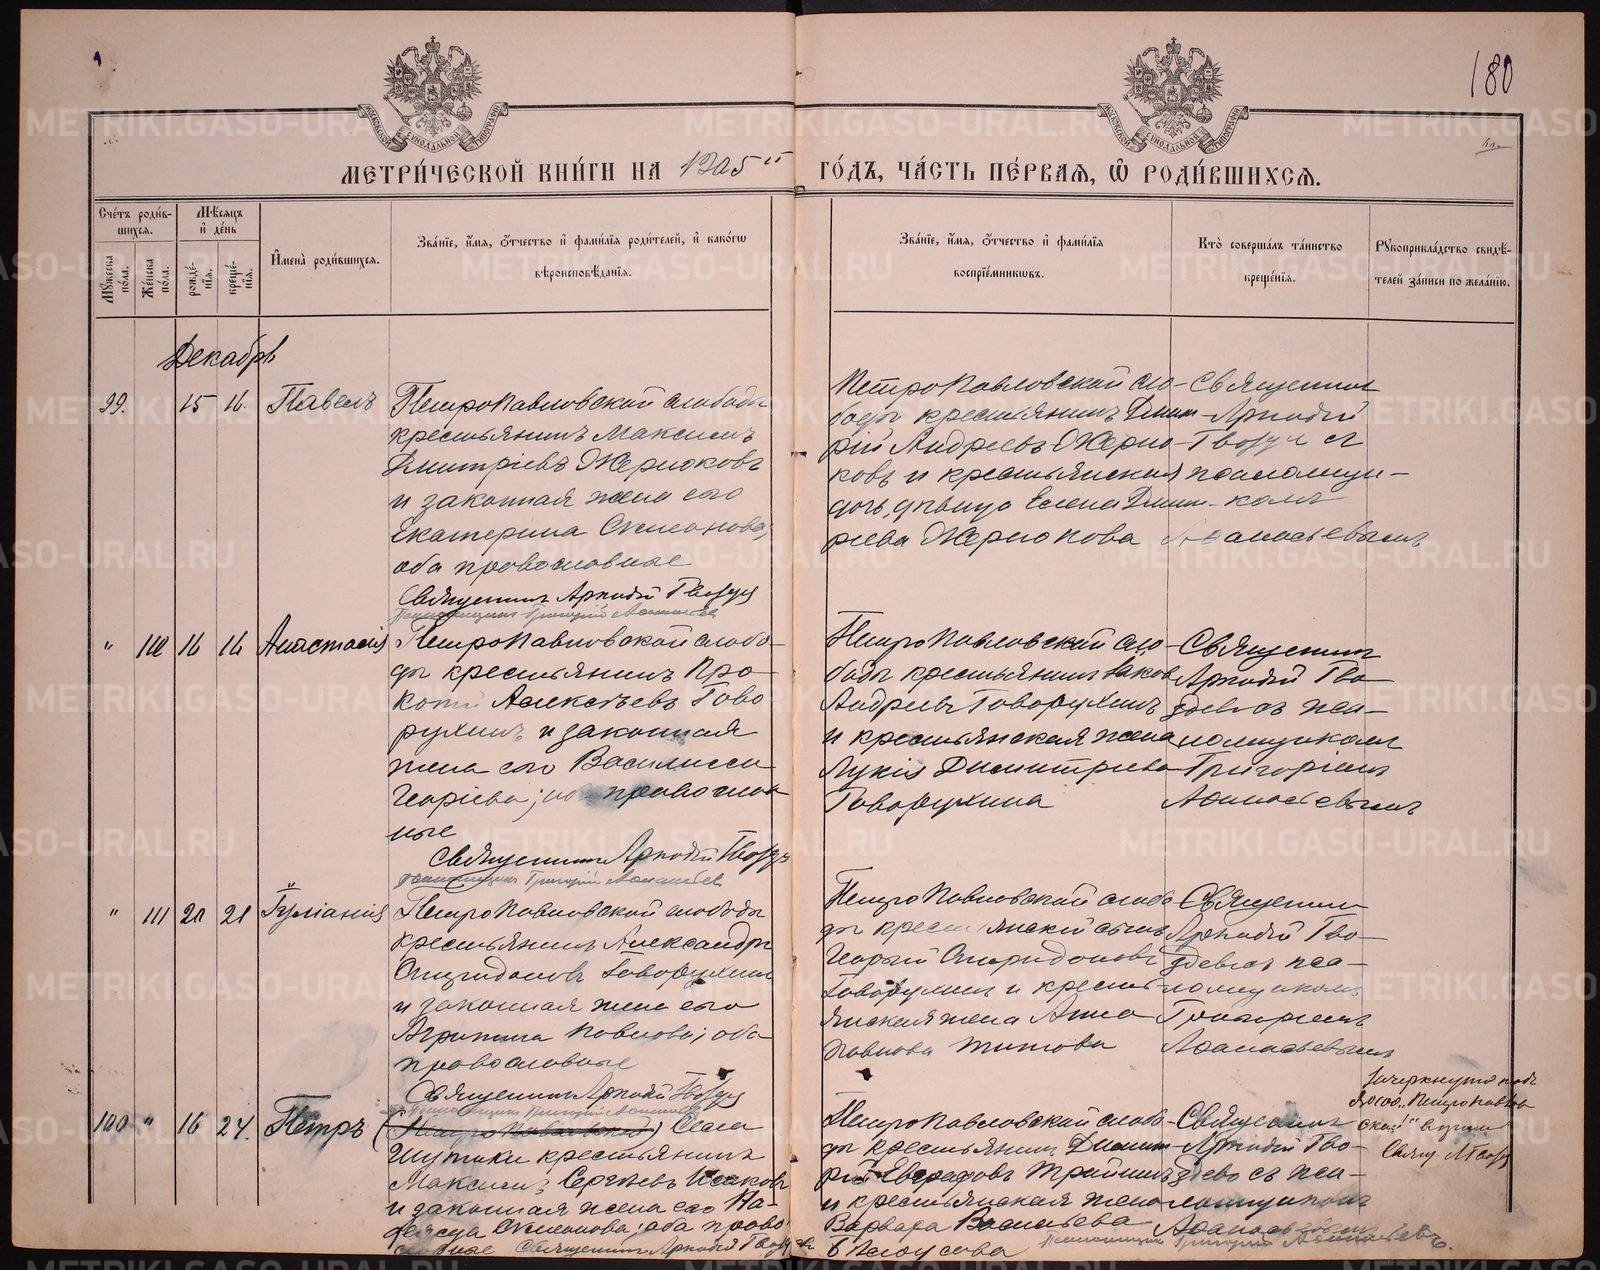 180
МЕТРИ́ЧЕСКОЙ КНИ́ГИ НА 1905 ГО́ДЪ, ЧА́СТЬ ПЕ́РВАЯ, Ѿ РОДИ́ВШИХСЯ.
Сче́тъ роди́в-
шихся.
Мѣ́сяцъ
и де́нь
Му́жеска
пола.
Же́нска
пола.
рожде́-
нія.
креще́-
нія.
Имена̀ роди́вшихся.
Зва́ніе, и́мя, о́тчество и фами́лія роди́телей, и како́гѡ
вѣроисповѣ́данія.
Зва́ніе, и́мя, о́тчество и фами́лія
воспріе́мниковъ.
Кто̀ соверша́лъ та́инство
креще́нія.
Рукоприкла́дство свидѣ́-
телей за́писи по жела́нію.
Декабрь
99. 15 16. Павелъ
Петропавловской слободы
крестьянинъ Максимъ
Дмитріевъ Жерноковъ
и законная жена его
Екатерина Симонова;
оба православные
Священникъ Аркадій Гвоздевъ
Псаломщикъ Григорій Аѳанасьевъ
Петропавловской сло-
боды крестьянинъ Дмит-
рій Андреевъ Жерно-
ковъ и крестьянская
дочь, дѣвица Елена Дмит-
ріева Жернокова
Священникъ
Аркадій
Гвоздевъ съ
псаломщи-
комъ
Аѳанасьевымъ
" 110 16 16 Анастасія
Петропавловской слобо-
ды крестьянинъ Про-
копій Алексѣевъ Гово-
рухинъ и законная
жена его Василисса
православ-
ные
Священникъ Аркадій Гвоздевъ
псаломщикъ Григорій Аѳанасьевъ
Петропавловской сло-
боды крестьянинъ Яковъ
Андреевъ Говорухинъ
и крестьянская жена
Лукія Димитріева
Говорухина
Священникъ
Аркадій Гво-
здевъ съ пса-
ломщикомъ
Григоріемъ
Аѳанасьевымъ
" 111 20 21 Іуліанія
Петропавловской слободы
крестьянинъ Александръ
Спиридоновъ Говорухинъ
и законная жена его
Агрипина Павлова; оба
православные
Священникъ Аркадій Гвоздевъ
Псаломщикъ Григорій Аѳанасьевъ
Петропавловской слобо-
ды крестьянскій сынъ
Георгій Спиридоновъ
Говорухинъ и кресть-
янская жена Анна
Павлова Титова
Священникъ
Аркадій Гво-
здевъ съ пса-
ломщикомъ
Григоріемъ
Аѳанасьевымъ
100 " 16 24. Петръ
(Петропавловской) Села
крестьянинъ
Максимъ Сергѣевъ Исаковъ
и законная жена его На-
дежда Симонова; оба право-
славные Священникъ Аркадій Гвоздевъ
Петропавловской слобо-
ды крестьянинъ Димит-
рій Евграфовъ
и крестьянская жена
Варвара Васильева
Белоусова
Священникъ
Аркадій Гво-
здевъ съ пса-
ломщикомъ
Аѳанасьевымъ
Псаломщикъ Григорій Аѳанасьевъ.
Зачеркнутое
Петропавлов
ской"
Свящ. А Гвозд